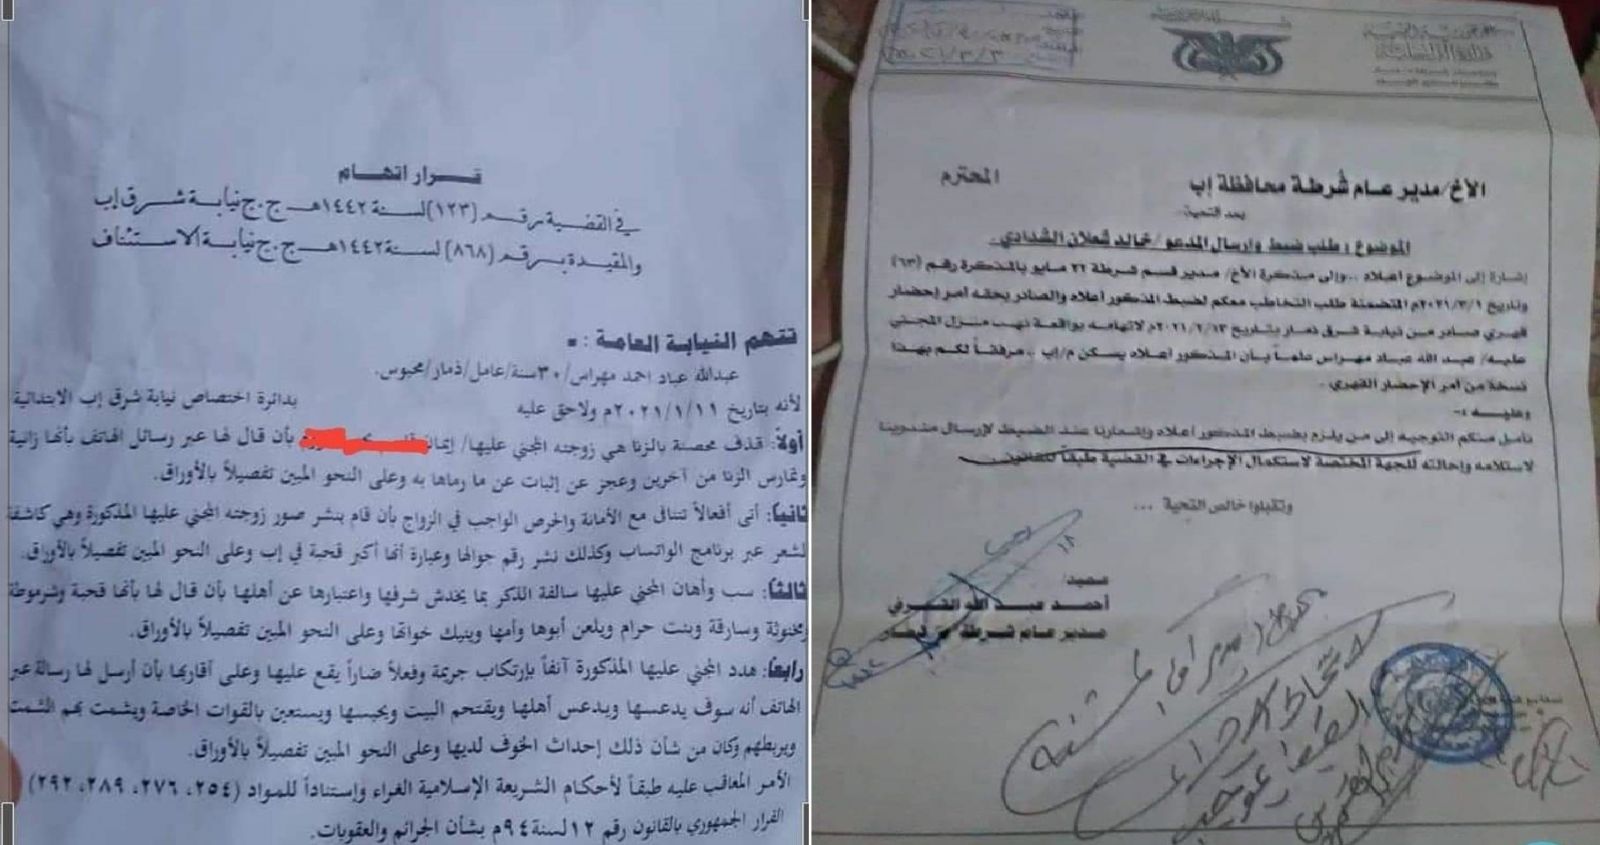 قرار اتهام
في القضية برقم (١٢٣) لسنة ١٤٤٢هـ ج.ج نيابة شرق إب
والمقيدة برقم (٨٦٨) لسنة ١٤٤٢هـ ج.ج نيابة الاستئناف
تتهم النيابة العامة :
عبدالله عباد احمد مهراس/٣٠سنة/عامل/ذمار/محبوس.
لأنه بتاريخ ٢٠٢١/١/١١م ولاحق عليه بدائرة اختصاص نيابة شرق إب الابتدائية
أولاً: قذف محصنة بالزنا هي زوجته المجني عليها/ إيمان بأن قال لها عبر رسائل الهاتف بأنها زانية
وتمارس الزنا من آخرين وعجز عن إثبات عن ما رماها به وعلى النحو المبين تفصيلاً بالأوراق.
ثانيا: أتى أفعالاً تتنافى مع الأمانة والحرص الواجب في الزواج بأن قام بنشر صور زوجته المجني عليها المذكورة وهي كاشفة
لشعر عبر برنامج الواتساب وكذلك نشر رقم جوالها وعبارة أنها أكبر قحبة في إب وعلى النحو المبين تفصيلاً بالأوراق.
ثالثا: سب وأهان المجني عليها سالفة الذكر بما يخدش شرفها واعتبارها عن أهلها بأن قال لها بأنها قحبة وشرموطة
مخنوثة وسارقة وبنت حرام ويلعن أبوها وأمها وينيك خواتها وعلى النحو المبين تفصيلاً بالأوراق.
رابعا: هدد المجني عليها المذكورة آنفاً بإرتكاب جريمة وفعلاً ضاراً يقع عليها وعلى أقاربها بأن أرسل لها رسالة عبر
الهاتف أنه سوف يدعسها ويدعس أهلها ويقتحم البيت ويحبسها ويستعين بالقوات الخاصة ويشمت بهم الشمت
ويربطهم وكان من شأن ذلك إحداث الخوف لديها وعلى النحو المبين تفصيلاً بالأوراق.
الأمر المعاقب عليه طبقاً لأحكام الشريعة الإسلامية الغراء وإستناداً للمواد (٢٥٤، ٢٧٦، ٢٨٩، ٢٩٢)
القرار الجمهوري بالقانون رقم ١٢لسنة ٩٤م بشأن الجرائم والعقوبات.
الأخ/مدير عام شرطة محافظة إب المحترم
بعد التحية
الموضوع : طلب ضبط وإرسال المدعو/خالد شعلان الشدادي
إشارة إلى الموضوع أعلاه ..وإلى مذكرة الأخ/ مدير قسم شرطة ٢٢ مايو بالمذكرة رقم (٦٣)
وتاريخ ٢٠٢١/٣/١م المتضمنة طلب التخاطب معكم لضبط المذكور أعلاه والصادر بحقه أمر إحضار
قهري صادر من نيابة شرق ذمار بتاريخ ٢٠٢١/٢/١٣م لاتهامه بواقعة نهب منزل المجني
عليه/ عبد الله عباد مهراس علماً بأن المذكور أعلاه يسكن م/إب .. مرفقاً لكم بهذا
نسخة من أمر الإحضار القهري.
وعليه :-
نأمل منكم التوجيه إلى من يلزم بضبط المذكور أعلاه وإشعارنا عند الضبط لإرسال مندوبنا
لاستلامه وإحالته للجهة المختصة لاستكمال الإجراءات في القضية طبقاً للقانون
وتقبلوا خالص التحية ...
عميد/
أحمد عبد الله الشرفي
مدير عام شرطة